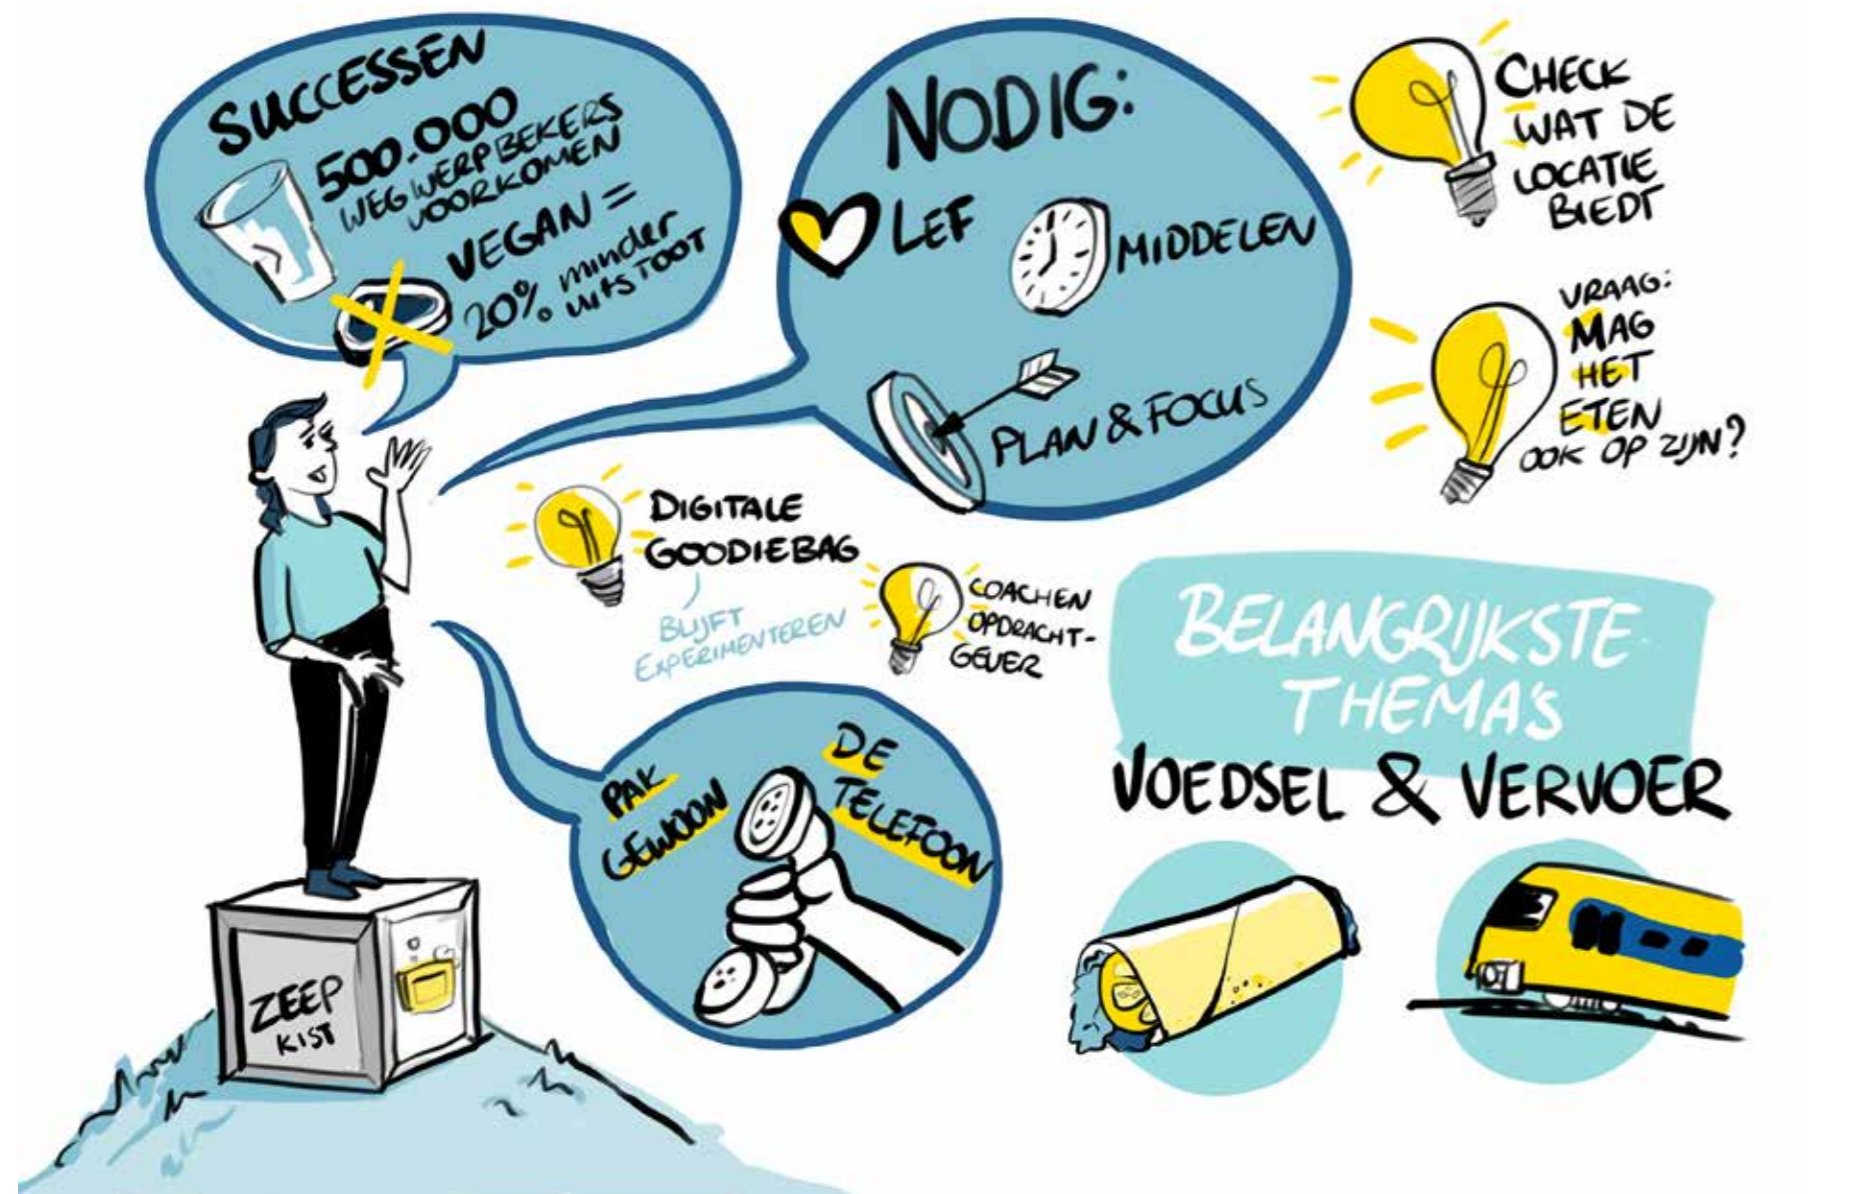 SUCCESSEN
500.000
WEGWERPBEKERS
VOORKOMEN
VEGAN =
20% minder
uitSTOOT
NODIG:
LEF
MIDDELEN
PLAN & FOCUS
CHECK
WAT DE
LOCATIE
BIEDT
VRAAG:
MAG
HET
ETEN
OOK OP ZIJN?
DIGITALE
GOODIEBAG
BLIJFT
EXPERIMENTEREN
COACHEN
OPDRACHT-
GEVER
PAK
GEWOON
DE
TELEFOON
BELANGRIJKSTE
THEMA'S
VOEDSEL & VERVOER
ZEEP
KIST